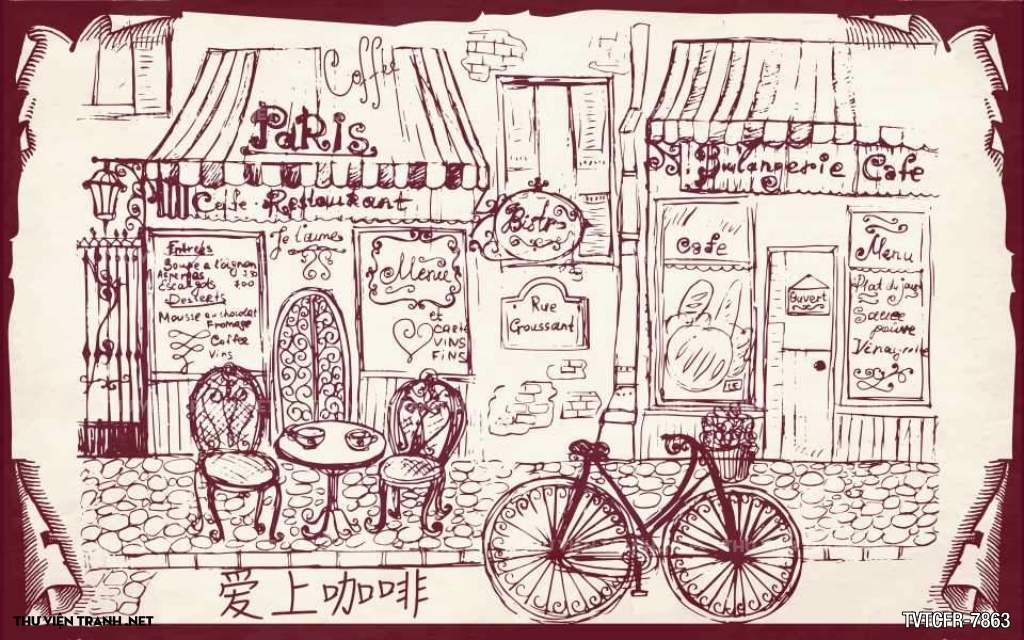 Coffee
PaRis
Cafe Restaurant
Je t'aime
Entrées
Soupe a l'oignon
Asperges 3.50
Escargots 7.00
Desserts
Mousse au chocolat
Fromage
Coffee
Vins
Menue
et
CAFIS
VINS
FINS
Bistro
Rue
Groussant
Boulangerie Cafe
Cafe
Ouvert
Menu
Plat du jour
Sauce
poivre
爱上咖啡
THƯ VIỆN TRANH .NET
TVTCFR-7863